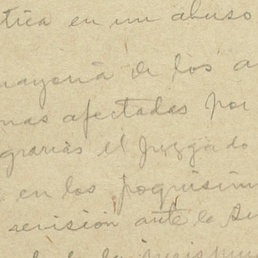 tica en un abuso
mayoria de los a
mas afectadas por
grarias el Juzgado
en los poquisim
revisión ante la Su